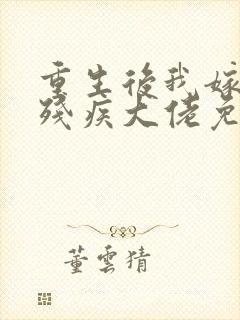 重生後我嫁
殘疾大佬免
董雲猜